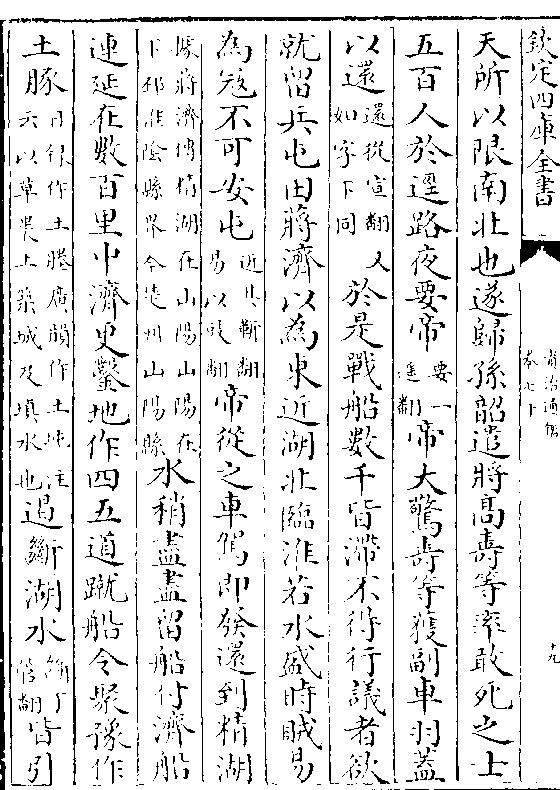 欽定四庫全書
資治通鑑
卷七十
十九
天所以限南北也遂歸孫韶遣將高壽等率敢死之士
五百人於逕路夜要帝要一遥翻帝大驚壽等獲副車羽蓋
以還還從宣翻又如字下同於是戰船數千皆滯不得行議者欲
就留兵屯田蔣濟以為東近湖北臨淮若水盛時賊易
為寇不可安屯近其靳翻易以豉翻帝從之車駕即發還到精湖
據蔣濟傳精湖在山陽山陽在下邳淮陰縣界今楚州山陽縣水稍盡盡留船付濟船
連延在數百里中濟更鑿地作四五道蹴船令聚豫作
土豚目録作土塍廣韻作土坉註云以草裹土築城及填水也遏斷湖水斷丁管翻皆引